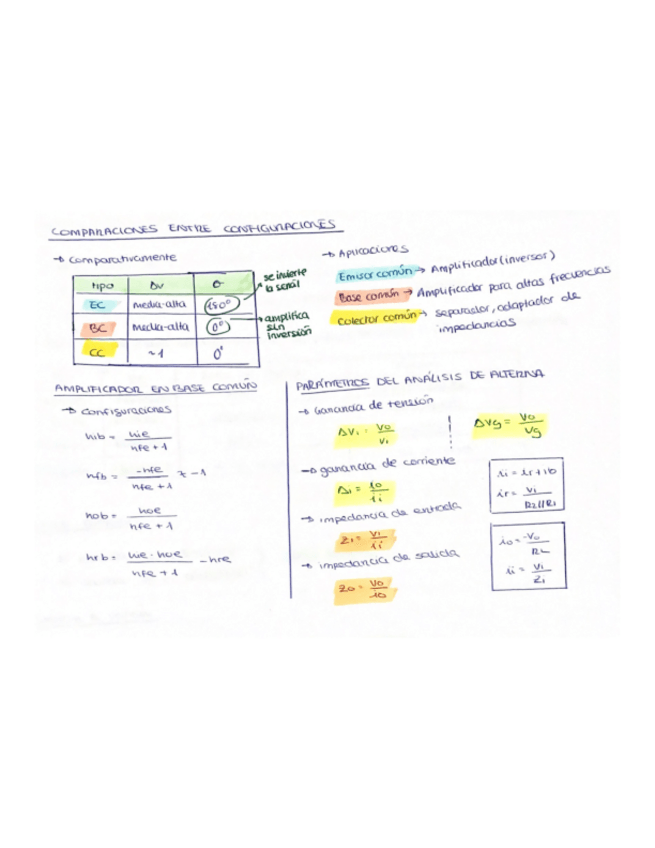 COMPARACIONES ENTRE CONFIGURACIONES
→ comparativamente
tipo Δv σ
EC media-alta 180°
BC media-alta 0°
CC ~1 0°
se invierte
la señal
amplifica
sin
inversión
→ Aplicaciones
Emisor común → Amplificador (inversor)
Base común → Amplificador para altas frecuencias
Colector común → separador, adaptador de
impedancias
AMPLIFICADOR EN BASE COMÚN
→ Configuraciones
hib = hie / hfe + 1
hfb = -hfe / hfe + 1 ≈ -1
hob = hoe / hfe + 1
hrb = hie · hoe / hfe + 1 - hre
PARÁMETROS DEL ANÁLISIS DE ALTERNA
→ Ganancia de tensión
ΔVi = Vo / Vi
ΔVg = Vo / Vg
→ ganancia de corriente
Δi = io / ii
→ impedancia de entrada
Zi = Vi / ii
→ impedancia de salida
Zo = Vo / io
ii = ir + ib
ir = Vi / R2//R1
io = -Vo / RL
ii = Vi / Zi